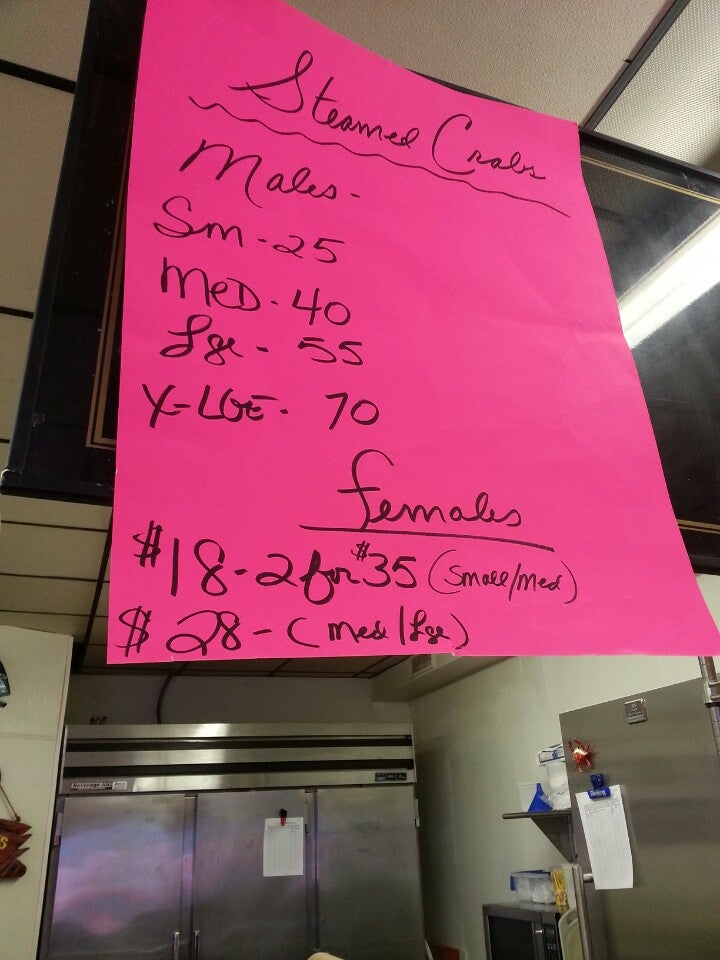 Steamed Crabs
Males -
Sm - 25
MeD - 40
Lge - 55
X-LGE - 70
females
$18 - 2 for $35 (small/med)
$28 - (med/Lge)
Beverage-Air